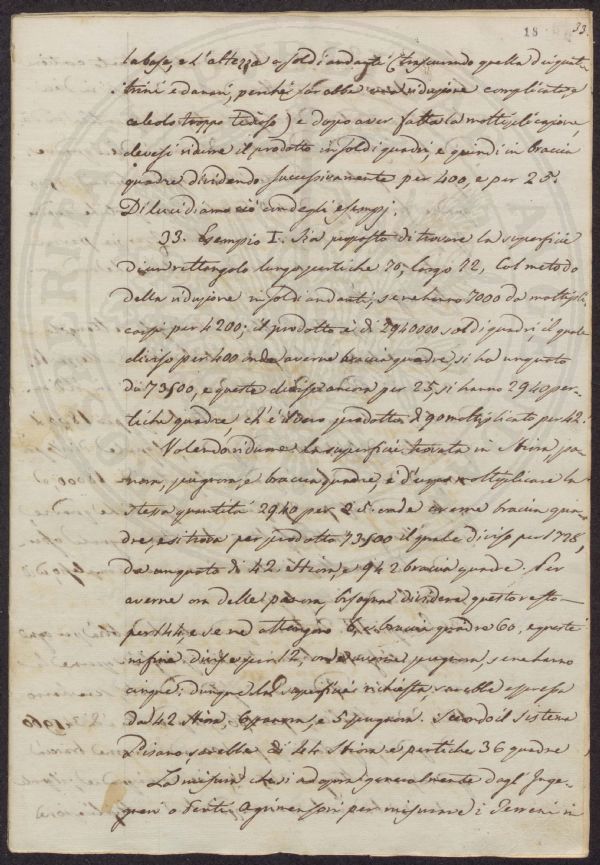 18
33.
la base, e l'altezza a soldi andanti (trascurando quella di quat-
trini e danari, perchè sarebbe una riduzione complicata, e
calcolo troppo tedioso) e dopo aver fatta la moltiplicazione,
devesi ridurre il prodotto in soldi quadri, e quindi in braccia
quadre dividendo successivamente per 400, e per 25.
Dilucidiamo ciò cindegli esempj.
23. Esempio I. Sia proposto di trovare la superficie
di un rettangolo lungo pertiche 70, largo 42, Col metodo
della riduzione in soldi andanti, se ne hanno 7000 da moltipli-
carsi per 4200; il prodotto è di 2940000 soldi quadri, il quale
diviso per 400 onde averne braccia quadre, si ha un quoto
di 73500, e queste divise ancora per 25, si hanno 2940 per-
tiche quadre ch'è il vero prodotto di 70 moltiplicato per 42.
Volendo ridurre la superficie trovata in Stiora, pa-
nora, pugnora, e braccia quadre, è d'uopo moltiplicare la
stessa quantità 2940 per 25. onde averne braccia qua-
dre, e si trova per prodotto 73500 il quale diviso per 1728,
da un quoto di 42 Stiora, e 942 braccia quadre. Per
averne ora delle panora, bisogna dividere questo resto
per 144 e se ne ottengono 6, e braccia quadre 60, e queste
infine divise per 12, onde averne pugnora, se ne hanno
cinque: dunque la superficie richiesta sarebbe espressa
da 42 Stiora, 6 panora, e 5 pugnora. Secondo il sistema
Pisano, sarebbe di 44 Stiora e pertiche 36 quadre
La misura che si adopra generalmente dagl'Inge-
gneri o Periti Agrimensori per misurare i Terreni in